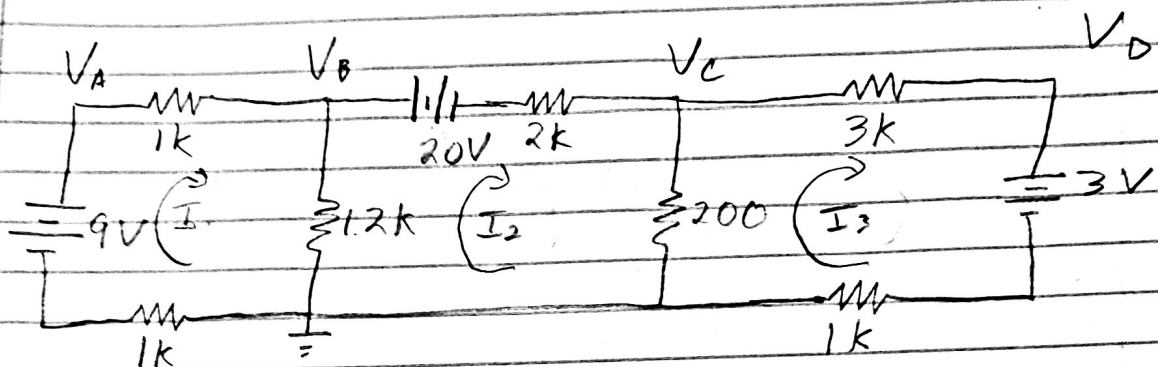 V_A V_B V_C V_D
1k 20V 2k 3k
9V I 1.2k I_2 200 I_3 3V
1k 1k